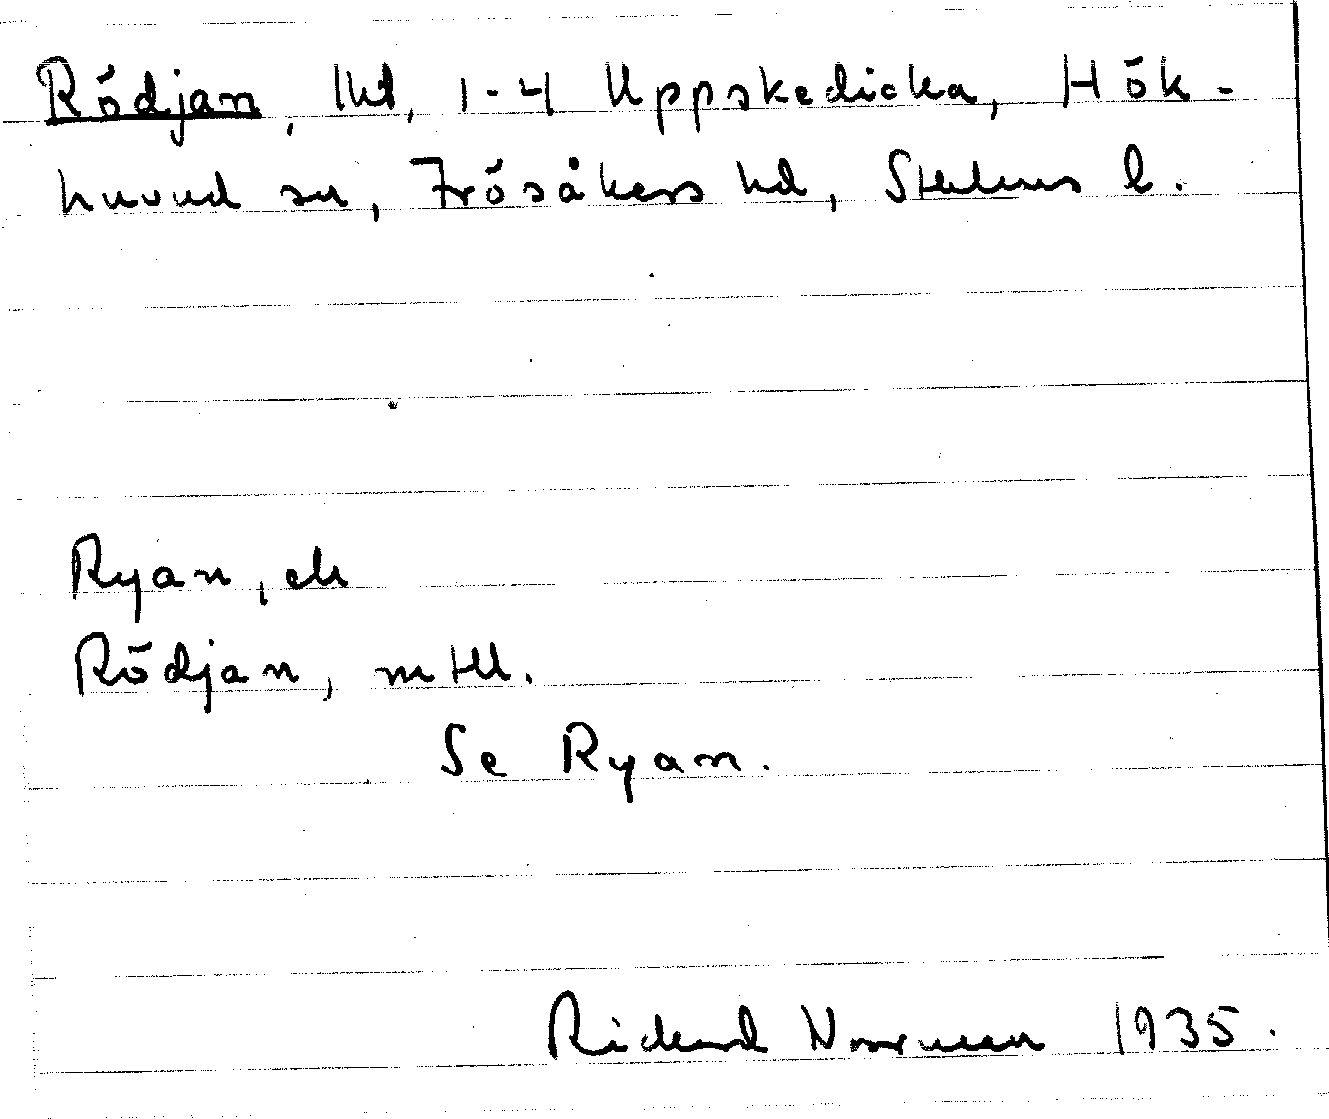 Rödjan, lht, 1-4 Uppskedicka, Hök-
huvud sn, Frösåkers hd, Sthlms l.
Ryan, ek
Rödjan, mtll.
Se Ryan.
Rickard Norrman 1935.